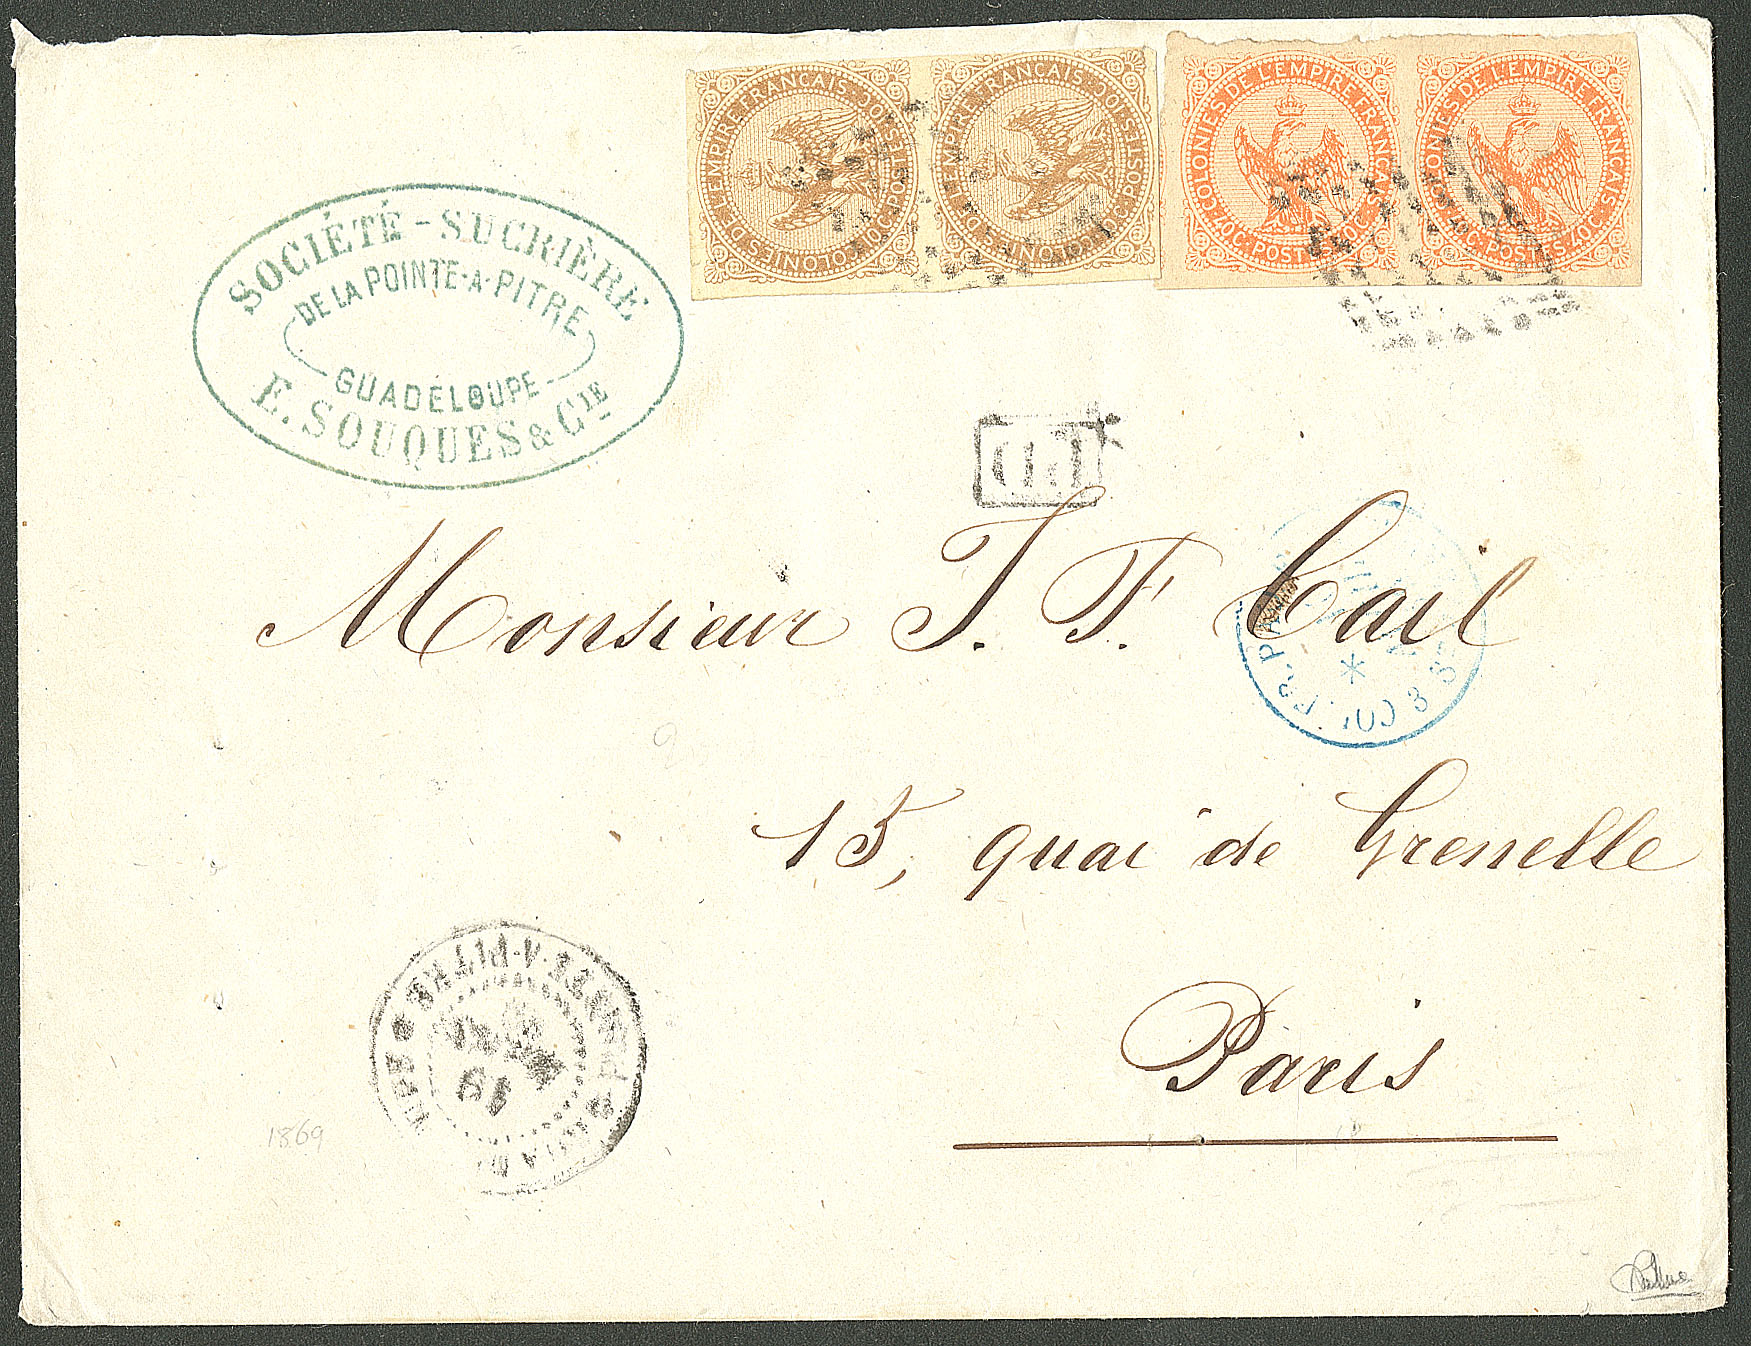 COLONIES DE L'EMPIRE FRANÇAIS·10C·POSTES·10C·
COLONIES DE L'EMPIRE FRANÇAIS·10C·POSTES·10C·
COLONIES DE L'EMPIRE FRANÇAIS·40C·POSTES·40C·
COLONIES DE L'EMPIRE FRANÇAIS·40C·POSTES·40C·
SOCIÉTÉ-SUCRIÈRE
DE LA POINTE-A-PITRE
GUADELOUPE
E. SOUQUES & CIE
Monsieur J. F. Cail
COL. FR. PAQ
3
15, quai de Grenelle
POINTE-A-PITRE
19
Paris
1869